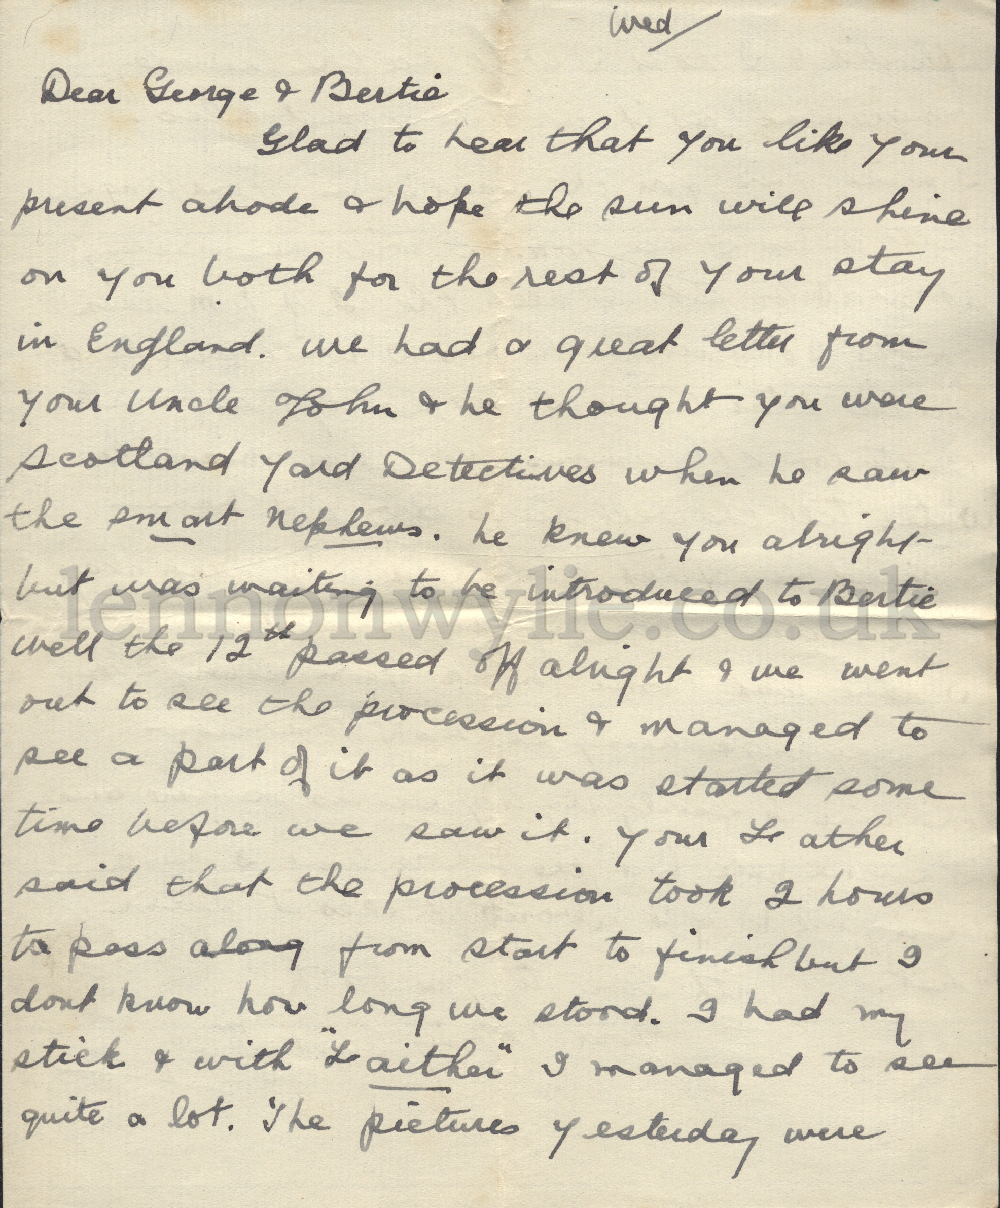 Wed/
Dear George & Bertie
Glad to hear that you like your
present abode & hope the sun will shine
on you both for the rest of your stay
in England. we had a great letter from
your Uncle John & he thought you were
Scotland Yard Detectives when he saw
the smart nephews. he knew you alright
but was waiting to be introduced to Bertie
lennonwylie.co.uk
well the 12th passed off alright & we went
out to see the procession & managed to
see a part of it as it was started some
time before we saw it. your Father
said that the procession took 2 hours
to pass along from start to finish but I
dont know how long we stood. I had my
stick & with "Faither" I managed to see
quite a lot. The pictures yesterday were